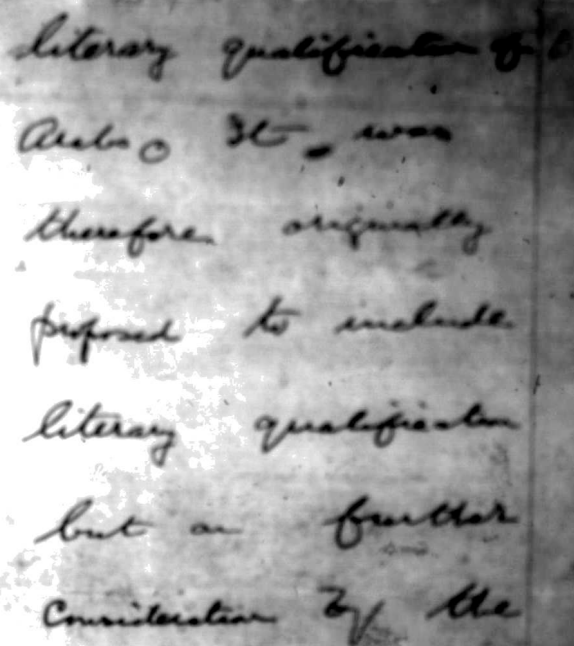 literary qualification of
Arabs. It was
therefore originally
proposed to include
literary qualification
but on further
consideration by the